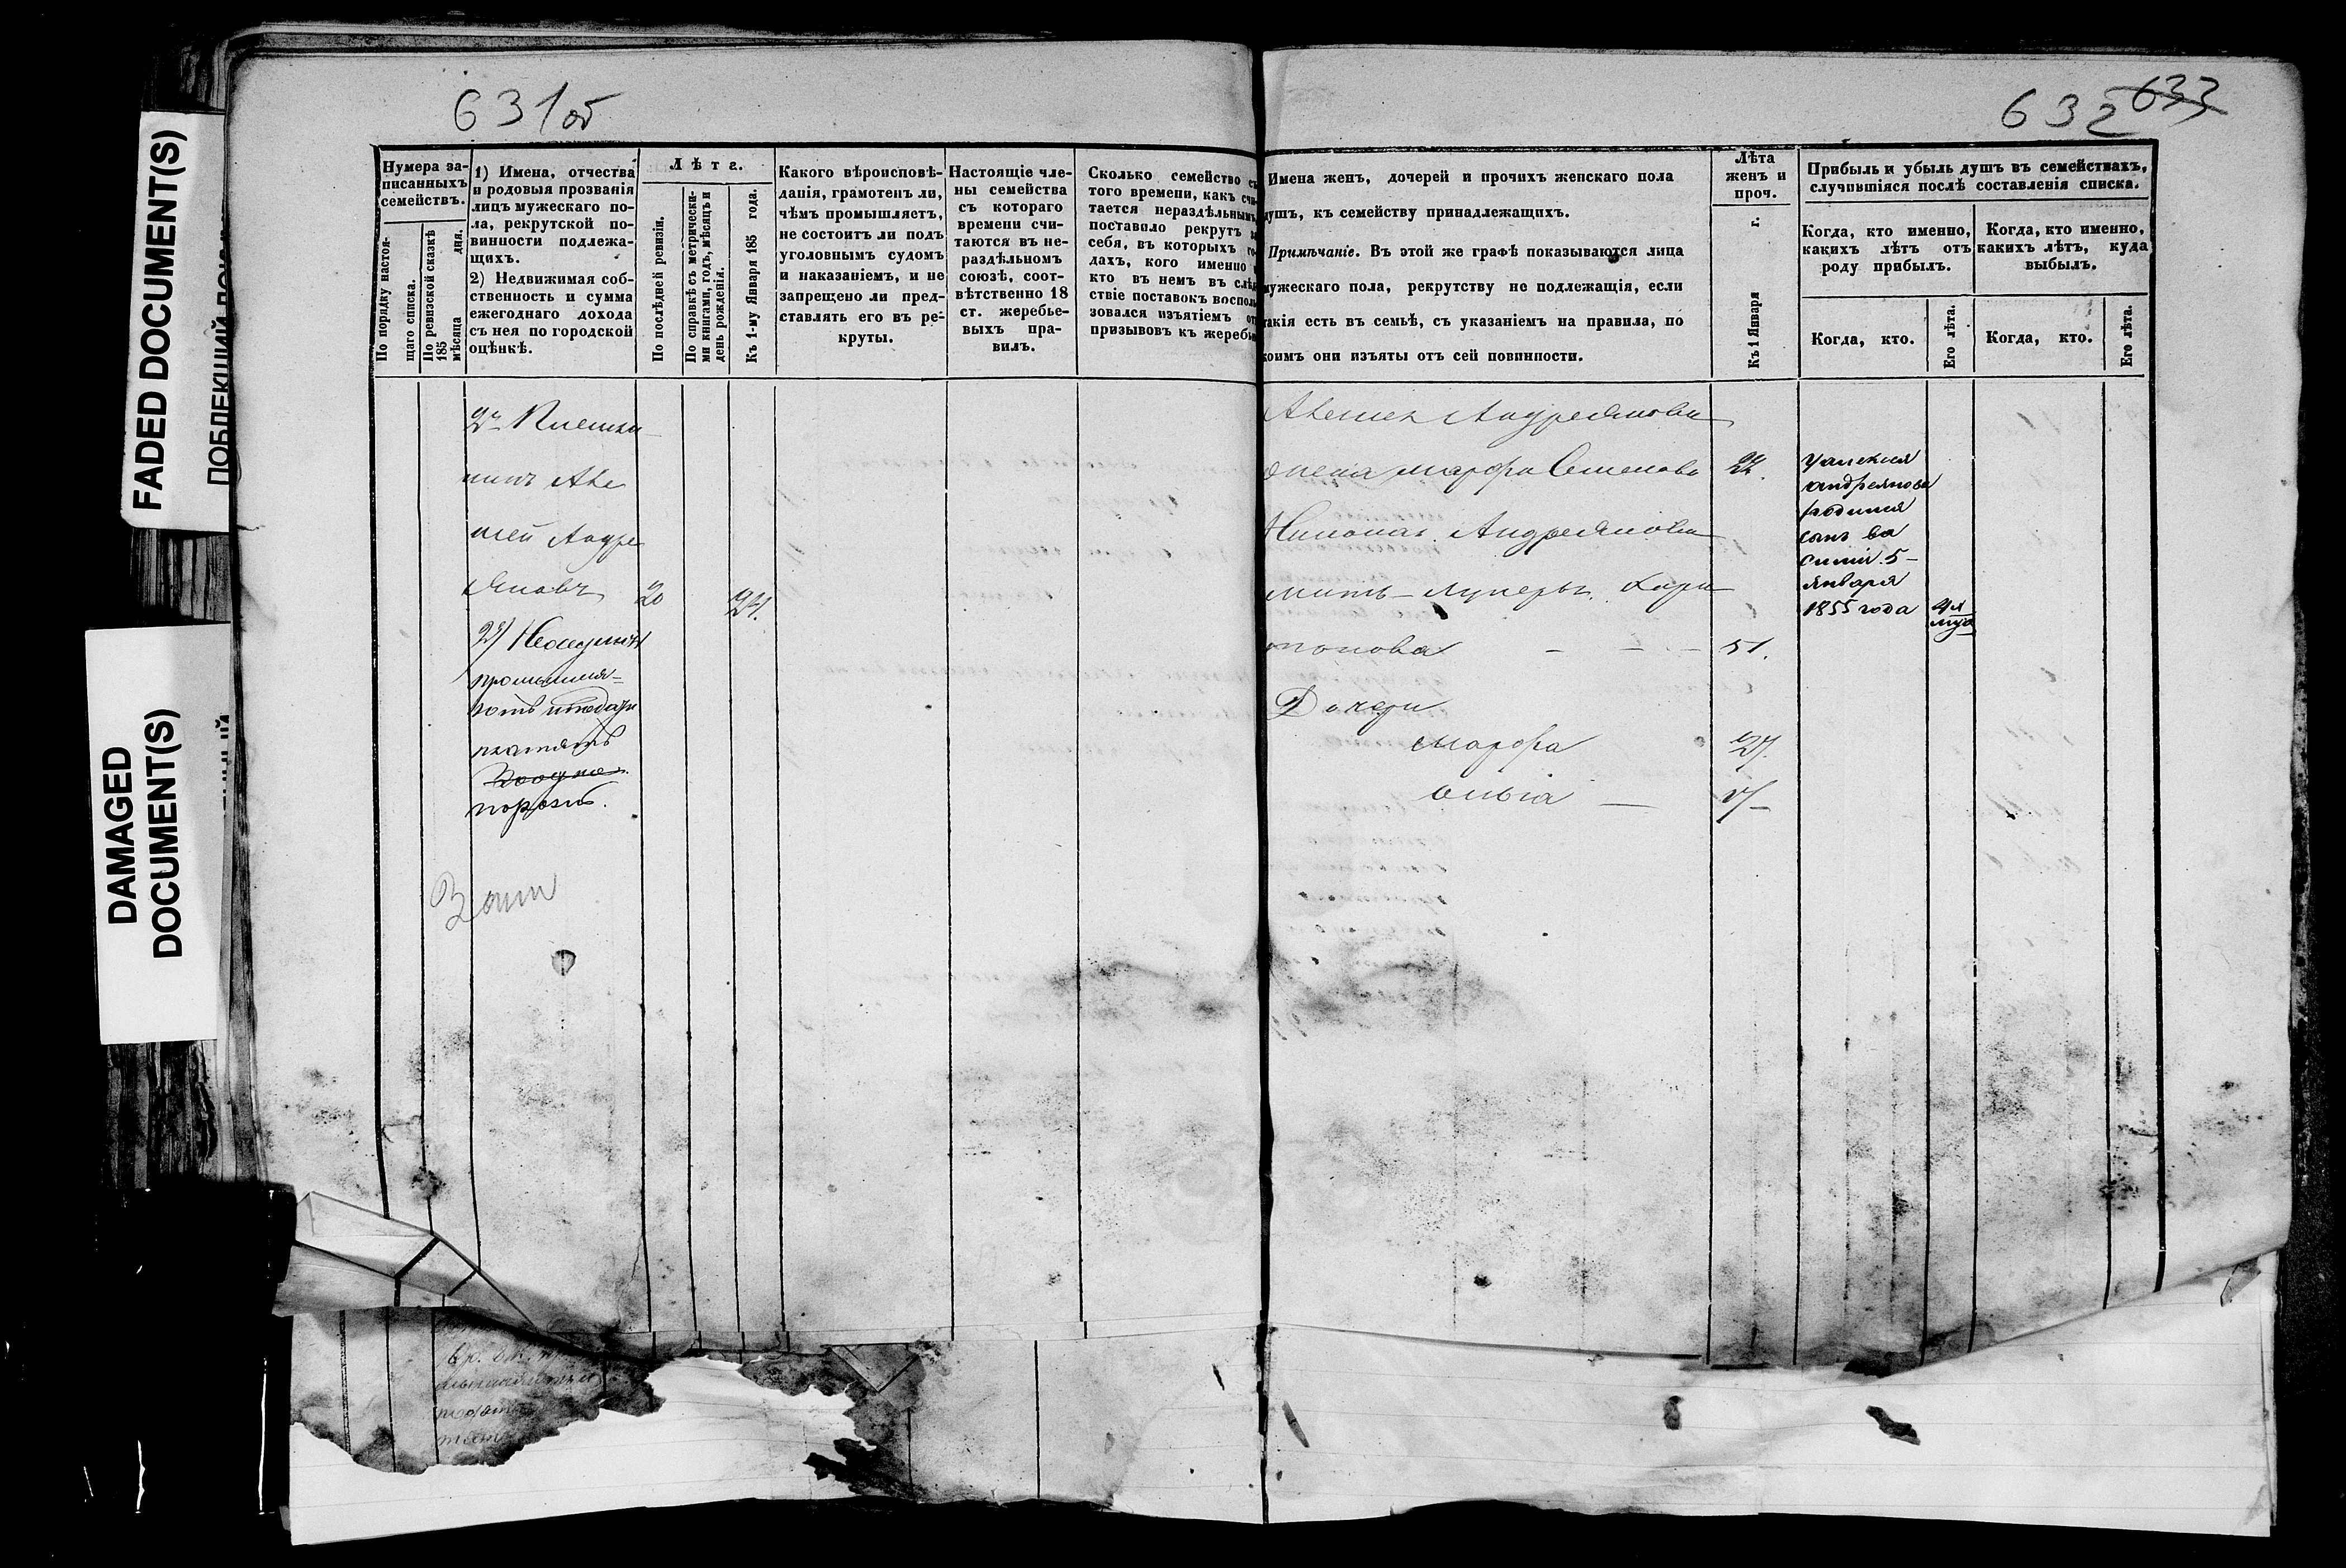 631об
632 633
FADED DOCUMENT(S)
DAMAGED
DOCUMENT(S)
Нумера за-
писанныхъ
семействъ.
По порядку настоя-
щаго списка.
По ревизской сказкѣ
185 мѣсяца дня.
1) Имена, отчества
и родовыя прозванія
лицъ мужескаго по-
ла, рекрутской по-
винности подлежа-
щихъ.
2) Недвижимая соб-
ственность и сумма
ежегоднаго дохода
съ нея по городской
оцѣнкѣ.
Лѣта.
По послѣдней ревизіи.
По справкѣ съ метрически-
ми книгами, годъ, мѣсяцъ и
день рожденія.
Къ 1-му Января 185 года.
Какого вѣроисповѣ-
данія, грамотенъ ли,
чѣмъ промышляетъ,
не состоитъ ли подъ
уголовнымъ судомъ
и наказаніемъ, и не
запрещено ли пред-
ставлять его въ ре-
круты.
Настоящіе чле-
ны семейства
съ котораго
времени счи-
таются въ не-
раздѣльномъ
союзѣ, соот-
вѣтственно 18
ст. жеребье-
выхъ пра-
вилъ.
Сколько семейство съ
того времени, какъ счи-
тается нераздѣльнымъ,
поставило рекрутъ за
себя, въ которыхъ го-
дахъ, кого именно и
кто въ немъ въ слѣд-
ствіе поставокъ восполь-
зовался изъятіемъ отъ
призывовъ къ жеребью
Имена женъ, дочерей и прочихъ женскаго пола
душъ, къ семейству принадлежащихъ.
Примѣчаніе. Въ этой же графѣ показываются лица
мужескаго пола, рекрутству не подлежащія, если
такія есть въ семьѣ, съ указаніемъ на правила, по
коимъ они изъяты отъ сей повинности.
Лѣта
женъ и
проч.
Къ 1 Января г.
Прибыль и убыль душъ въ семействахъ,
случившіяся послѣ составленія списка.
Когда, кто именно,
какихъ лѣтъ отъ
роду прибылъ.
Когда, кто именно,
какихъ лѣтъ, куда
выбылъ.
Когда, кто.
Его лѣта.
Когда, кто.
Его лѣта.
ксей Андре
яновъ 20
промышля-
платятъ
порознь.
Алексея Андреянова
жена Марфа Семенова 22.
Николая Андреянова
мать Лукерья Хари
тонова 51.
Дочери
Марфа
Ольга
У алексея
андреянова
родился
сынъ ва
силій 5
января
1855 года